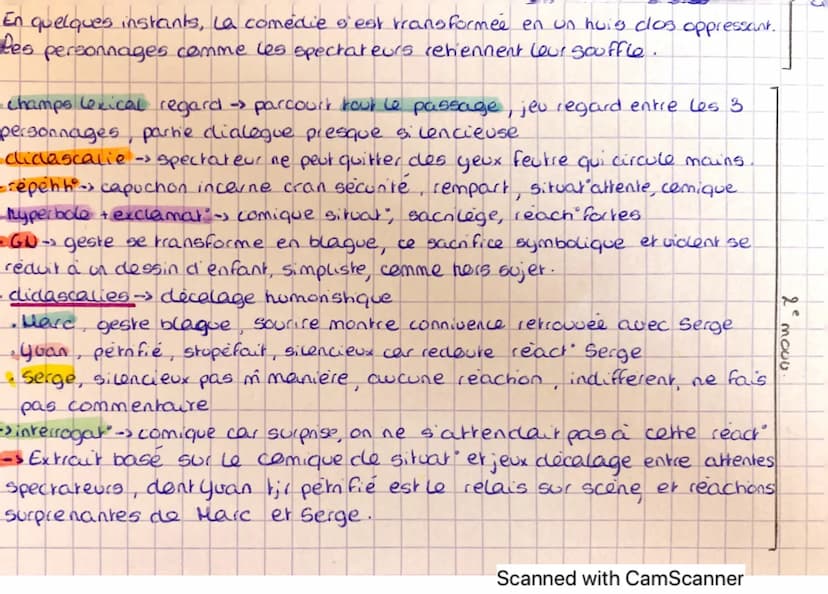 En quelques instants, la comédie s'est transformée en un huis clos oppressant.
Les personnages comme les spectateurs retiennent leur souffle.
champs lexical regard -> parcourt tout le passage, jeu regard entre les 3
personnages, partie dialogue presque silencieuse
- didascalie -> spectateur ne peut quitter des yeux feutre qui circule mains.
- répét° -> capuchon incarne cran sécurité, rempart, situat° attente, comique
- hyperbole + exclamat° -> comique situat°, sacrilège, réact° fortes
- GN -> geste se transforme en blague, ce sacrifice symbolique et violent se
réduit à un dessin d'enfant, simpliste, comme hors sujet.
- didascalies -> décalage humoristique
• Marc, geste blague, sourire montre connivence retrouvée avec Serge
• Yvan, pétrifié, stupéfait, silencieux car redoute réact° Serge
• Serge, silencieux pas m̂ manière, aucune réaction, indifférent, ne fais
pas commentaire
-> interrogat° -> comique car surprise, on ne s'attendait pas à cette réact°
-> Extrait basé sur le comique de situat° et jeux décalage entre attentes
spectateurs, dont Yvan tjr pétrifié est le relais sur scène, et réactions
surprenantes de Marc et Serge.
2e mouv.
Scanned with CamScanner